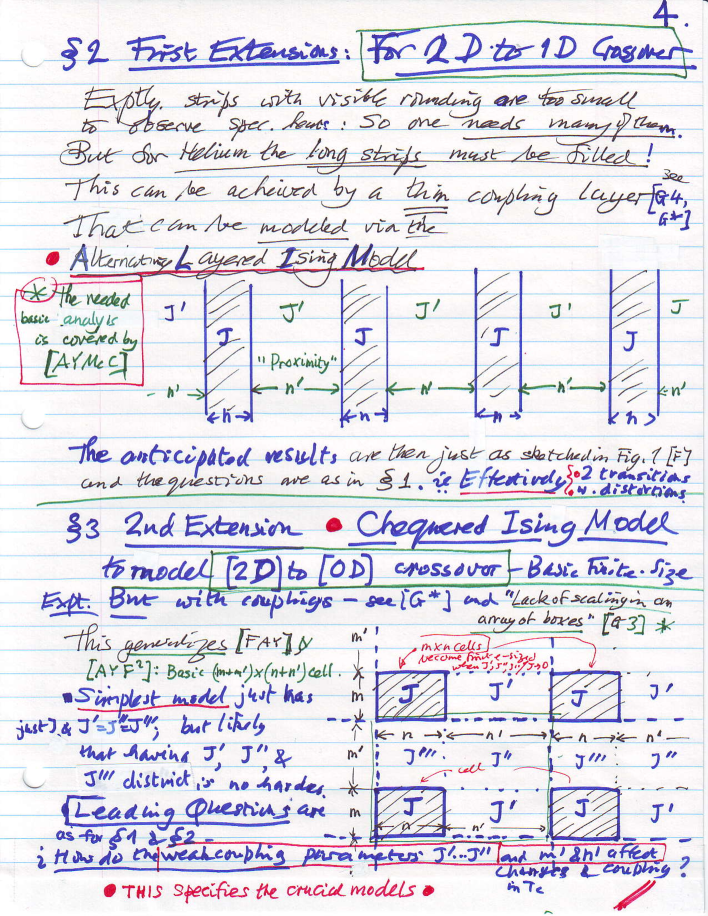 4.
§2 First Extensions: For 2D to 1D Crossover
Exptly. strips with visible rounding are too small
to observe spec. heats: So one needs many of them.
But for Helium the long strips must be filled!
This can be acheived by a thin coupling layer [G4, G*]
see
That can be modeled via the
• Alternating Layered Ising Model
* The needed
basic analysis
is covered by
[AYMcC]
J' J J' J J' J J' J J
"Proximity"
n' n n' n n' n n' n n'
The anticipated results are then just as sketched in Fig. 1 [F]
and the questions are as in §1. ie Effectively • 2 transitions
• w. distortions
§3 2nd Extension • Chequered Ising Model
to model [2D] to [0D] crossover - Basic Finite-Size
Expt. But with couplings - see [G*] and "Lack of scaling in an
array of boxes" [G3] *
This generalizes [FAY] &
[AYF²]: Basic (m+m')x(n+n') cell.
m'
m×n cells
become finite-sized
when J', J'', J'''→0
▪ Simplest model just has
just J & J'=J''=J''', but likely
that having J', J'', &
J''' district is no harder.
m J J' J J'
n n' n n'
m' J''' J'' J''' J''
cell
m J J' J J'
n n'
Leading Questions are
as for §1 & §2 -
¿ How do the weak coupling parameters J'...J'' and m' & n' affect
changes & coupling ?
in Tc
• THIS Specifies the crucial models •